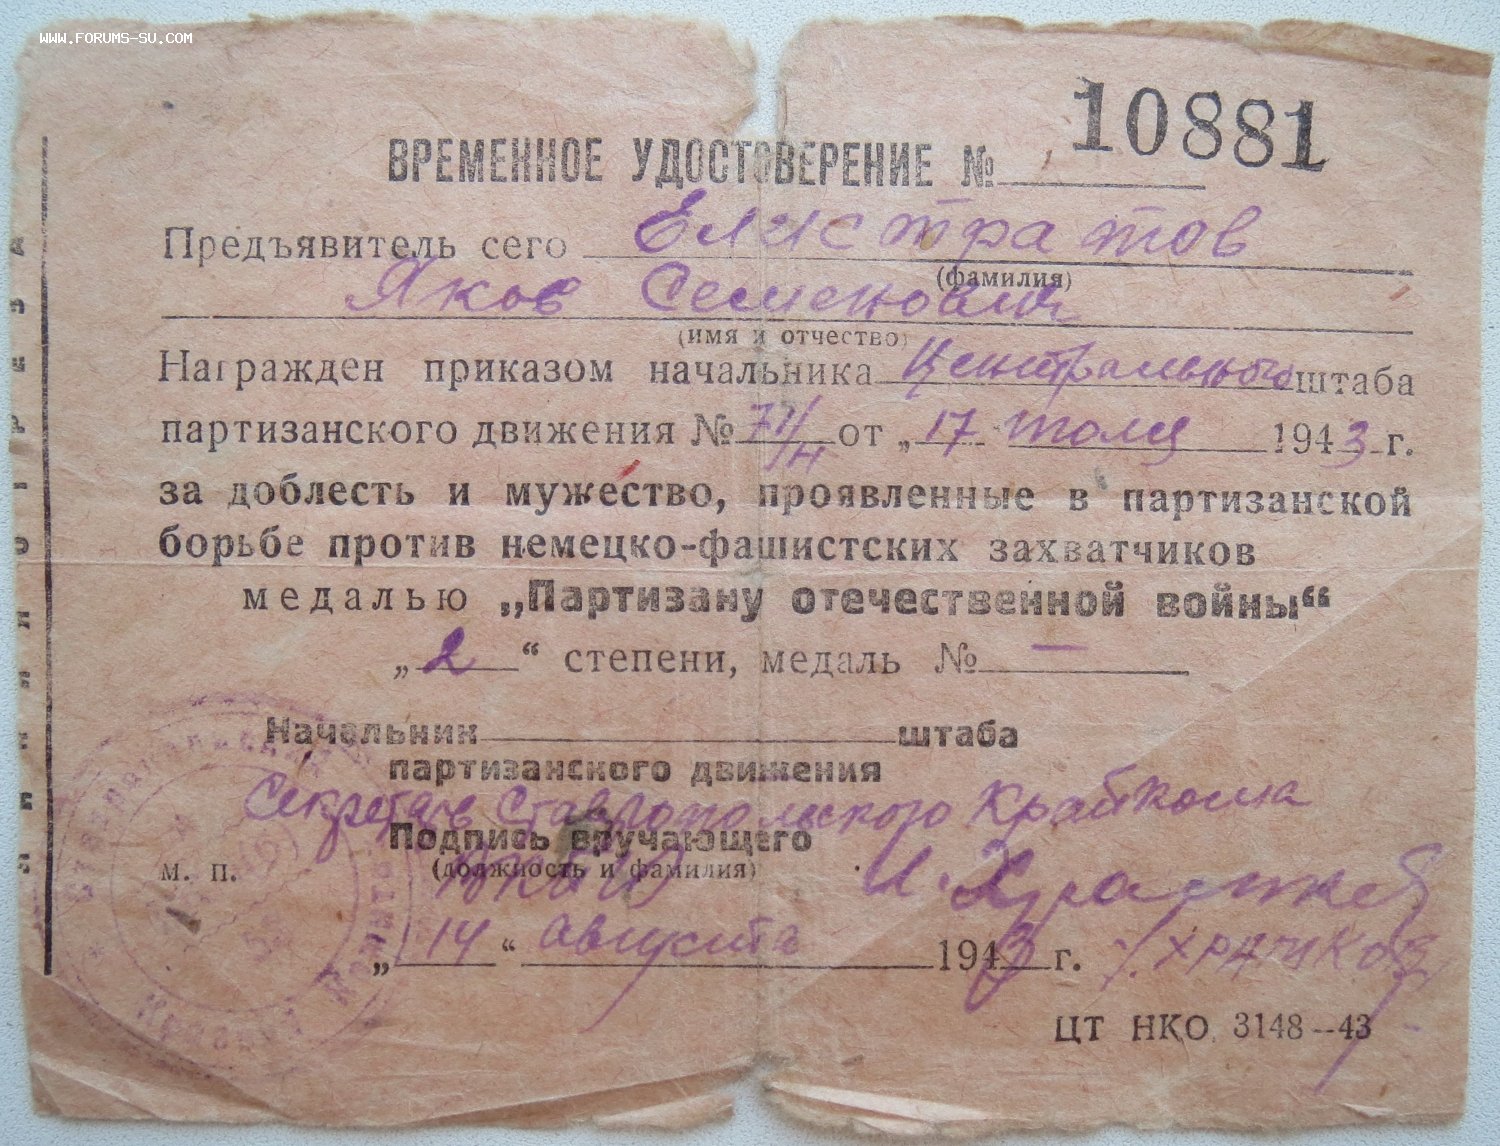 www.forums-su.com
10881
ВРЕМЕННОЕ УДОСТОВЕРЕНИЕ №
Предъявитель сего Елистратов
(фамилия)
Яков Семенович
(имя и отчество)
Награжден приказом начальника Центрального штаба
партизанского движения № 71/н от „17 июля 1943 г.
за доблесть и мужество, проявленные в партизанской
борьбе против немецко-фашистских захватчиков
медалью „Партизану отечественной войны“
„2“ степени, медаль № —
Начальник штаба
партизанского движения
Секретарь Ставропольского Крайкома
Подпись вручающего
ВКП(б)
(должность и фамилия)
м. п.
„14“ августа 1943 г. /Храмков/
ЦТ НКО 3148--43